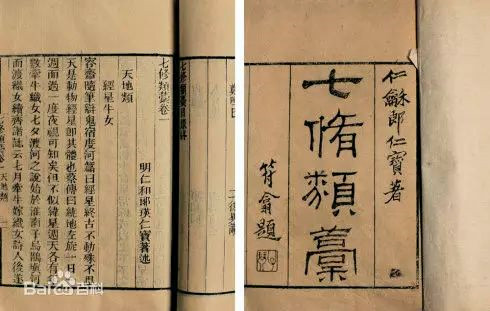 仁龢郎仁寶著
七脩類藁
符翕題
七修類藁卷一
明仁和郎瑛仁寶著述
天地類
經星牛女
容齋隨筆辯鬼宿度河篇曰經星終古不動殊不思
天是動物經星即其體也蔡傳曰繞地左旋一日
週而過一度夜視可知矣但不似緯星週天各有
數牽牛織女七夕渡河之說始於淮南子烏鵲填河
而渡織女續齊諧誌云七月牽牛嫁織女詩人後遂
天地類
Baidu百科